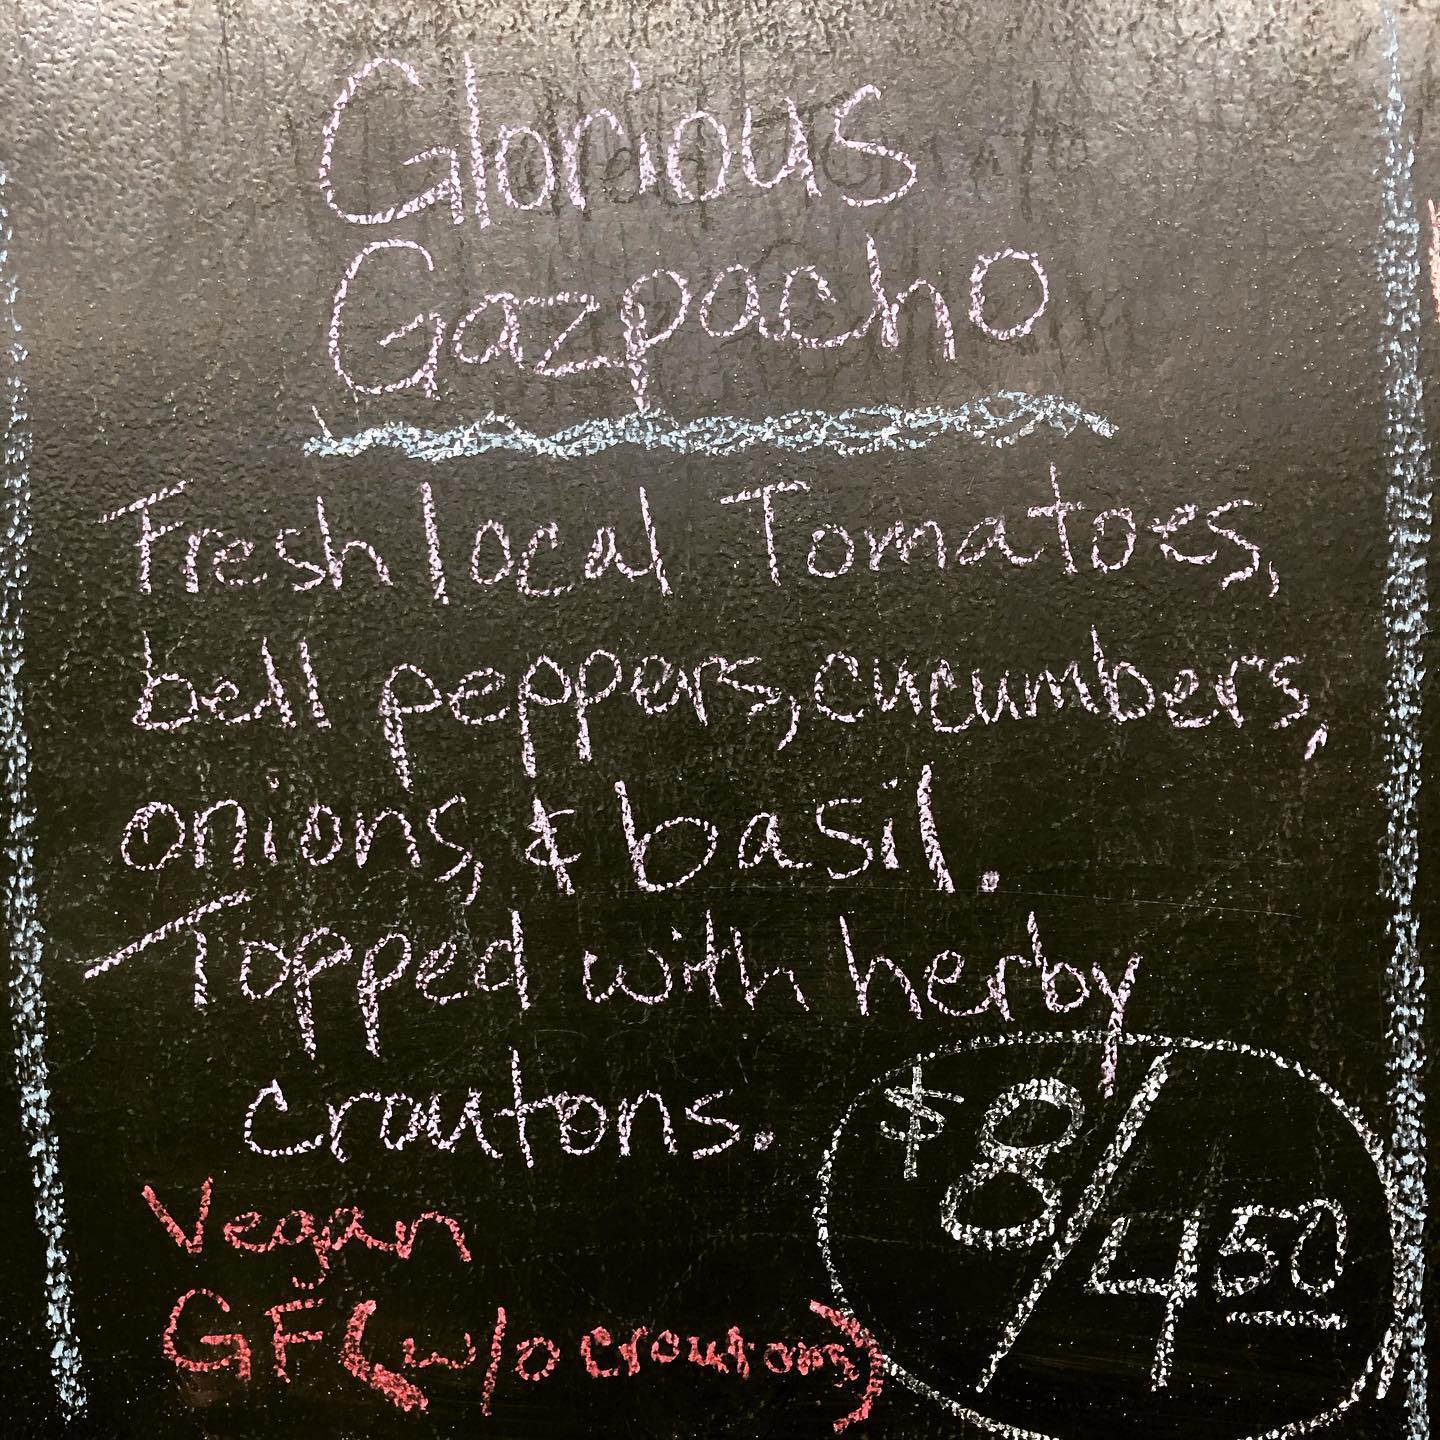 Glorious
Gazpacho
Fresh local Tomatoes,
bell peppers, cucumbers,
onions, & basil.
Topped with herby
croutons.
$8/4.50
Vegan
GF (w/o croutons)